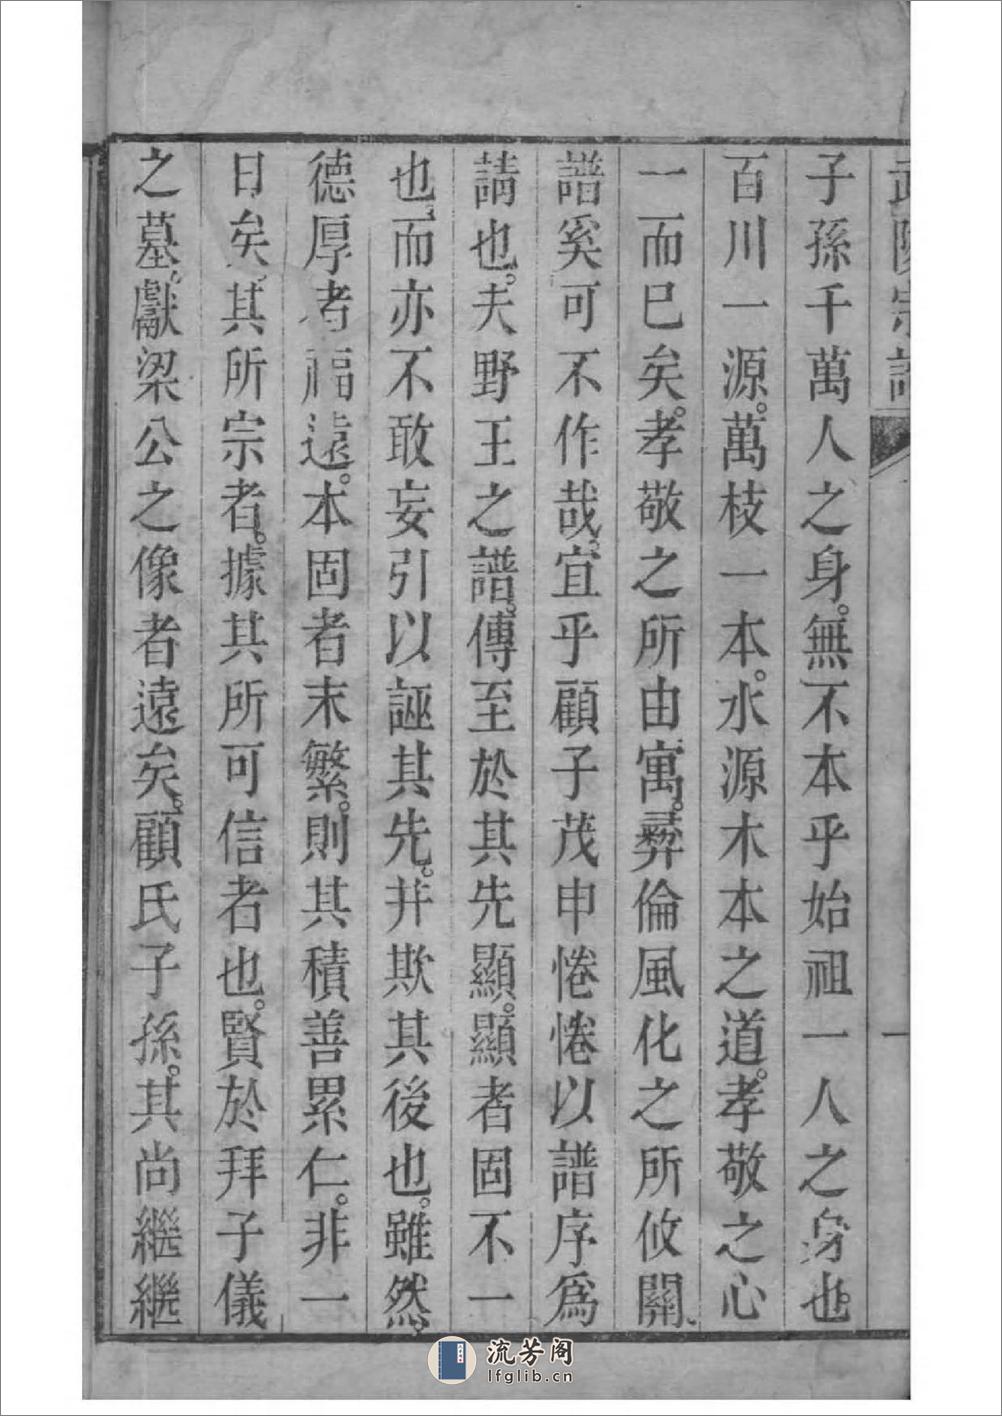 武陵宗譜
一
子孫千萬人之身。無不本乎始祖一人之身也
百川一源。萬枝一本。水源木本之道。孝敬之心
一而巳矣。孝敬之所由寓。彞倫風化之所攸關。
譜奚可不作哉。宜乎顧子茂申惓惓以譜序爲
請也。夫野王之譜。傳至於其先顯。顯者固不一
也。而亦不敢妄引以誣其先。并欺其後也。雖然。
德厚者福遠。本固者末繁。則其積善累仁。非一
日矣。其所宗者。據其所可信者也。賢於拜子儀
之墓。獻梁公之像者遠矣。顧氏子孫。其尚繼繼
流芳阁
lfglib.cn